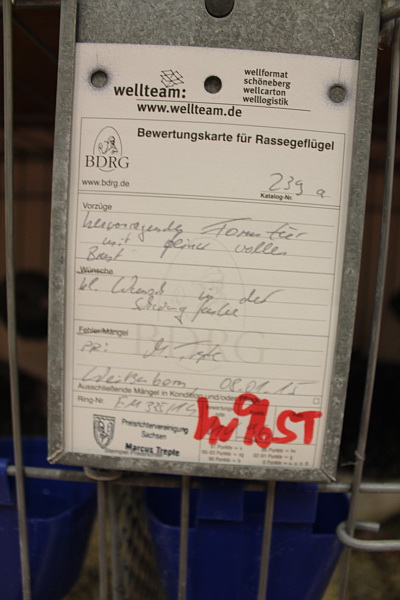 wellteam:
wellformat
schöneberg
wellcarton
welllogistik
www.wellteam.de
BDRG
Bewertungskarte für Rassegeflügel
www.bdrg.de
239 a
Katalog-Nr.
Vorzüge
hervorragendes Formtier
mit feiner voller
Brust
Wünsche
kl. Wunsch in der
fester
Fehler/Mängel
PR: M. Trepte
Weißenborn, 08.01.15
Ausschließende Mängel in Kondition und/oder
Ring-Nr.
Preisrichtervereinigung
Sachsen
Marcus Trepte